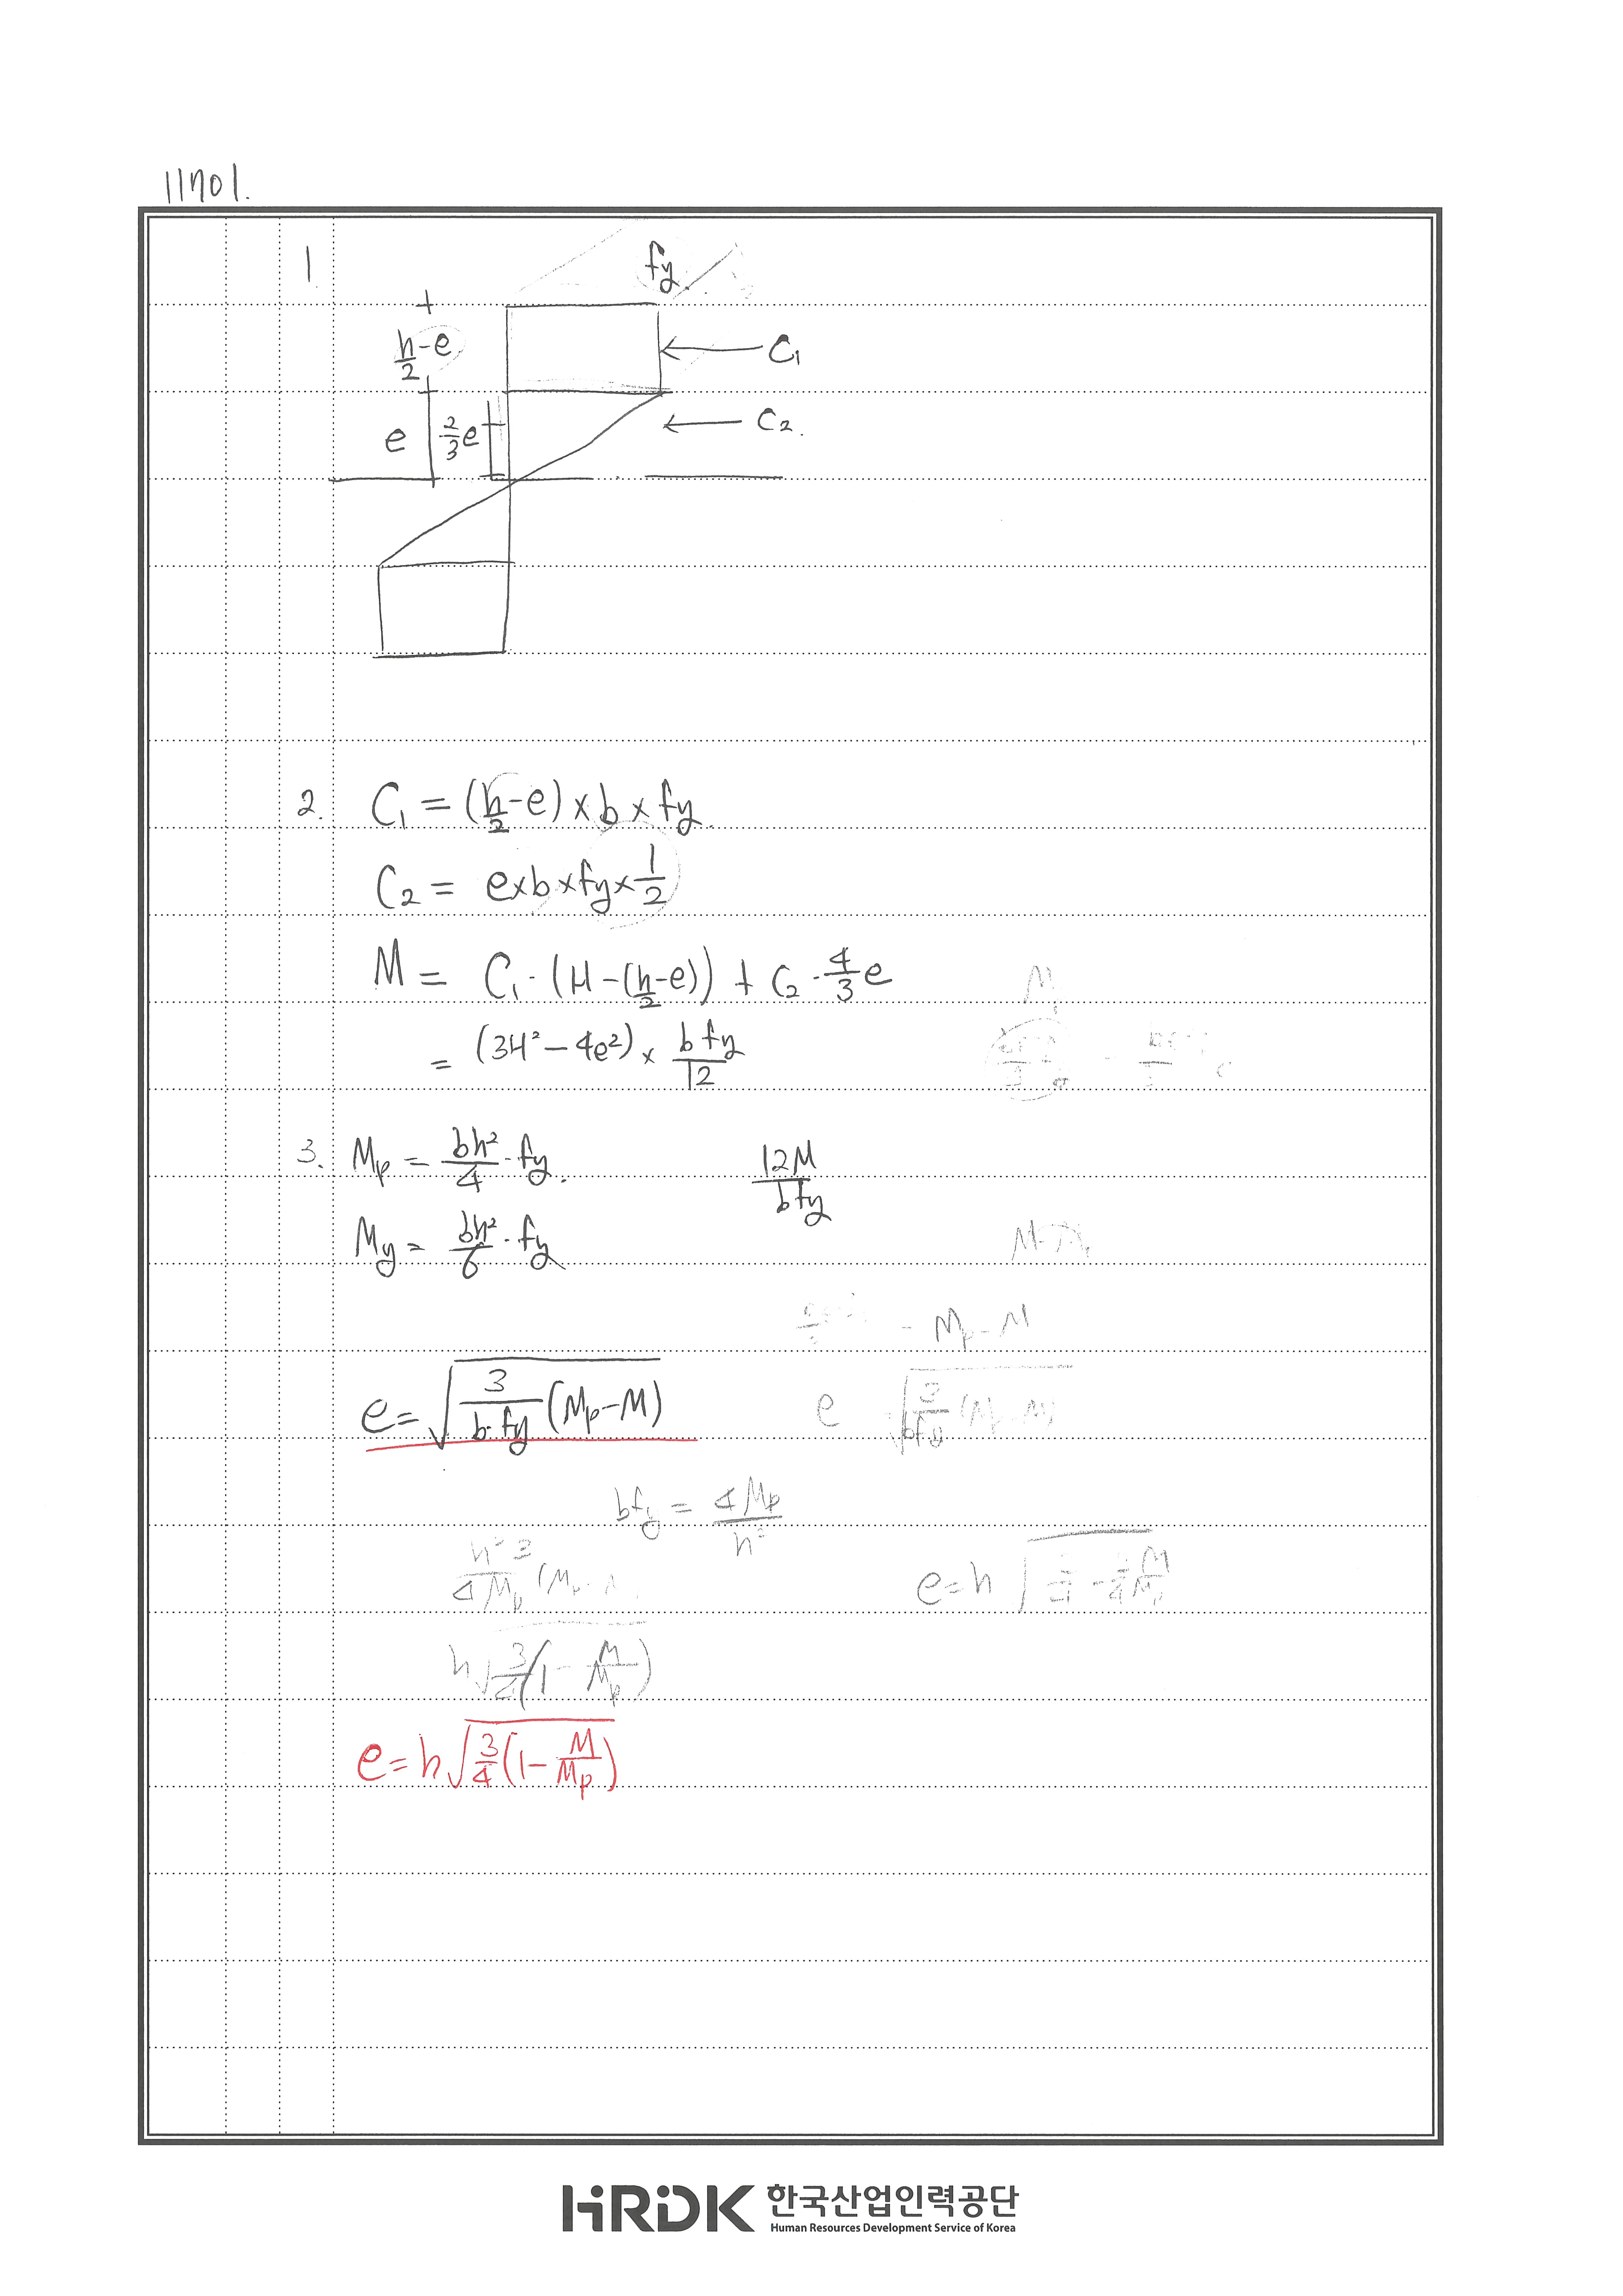 11701.
1.
fy
h/2 - e
C1
e
2/3 e
C2.
2. C1 = (h/2 - e) × b × fy.
C2 = e×b×fy×1/2
M = C1·(H-(h/2-e)) + C2·4/3 e
= (3H²-4e²) × bfy/12
3. Mp = bh²/4·fy.
12M/bfy
My = bh²/6·fy
- Mp - M
e = √(3/(b·fy) (Mp-M))
e √(3/bfy (Mp-M))
bfy = 4Mp/h²
h√(3/4(1-M/Mp))
e = h√(3/4(1-M/Mp))
HRDK 한국산업인력공단
Human Resources Development Service of Korea